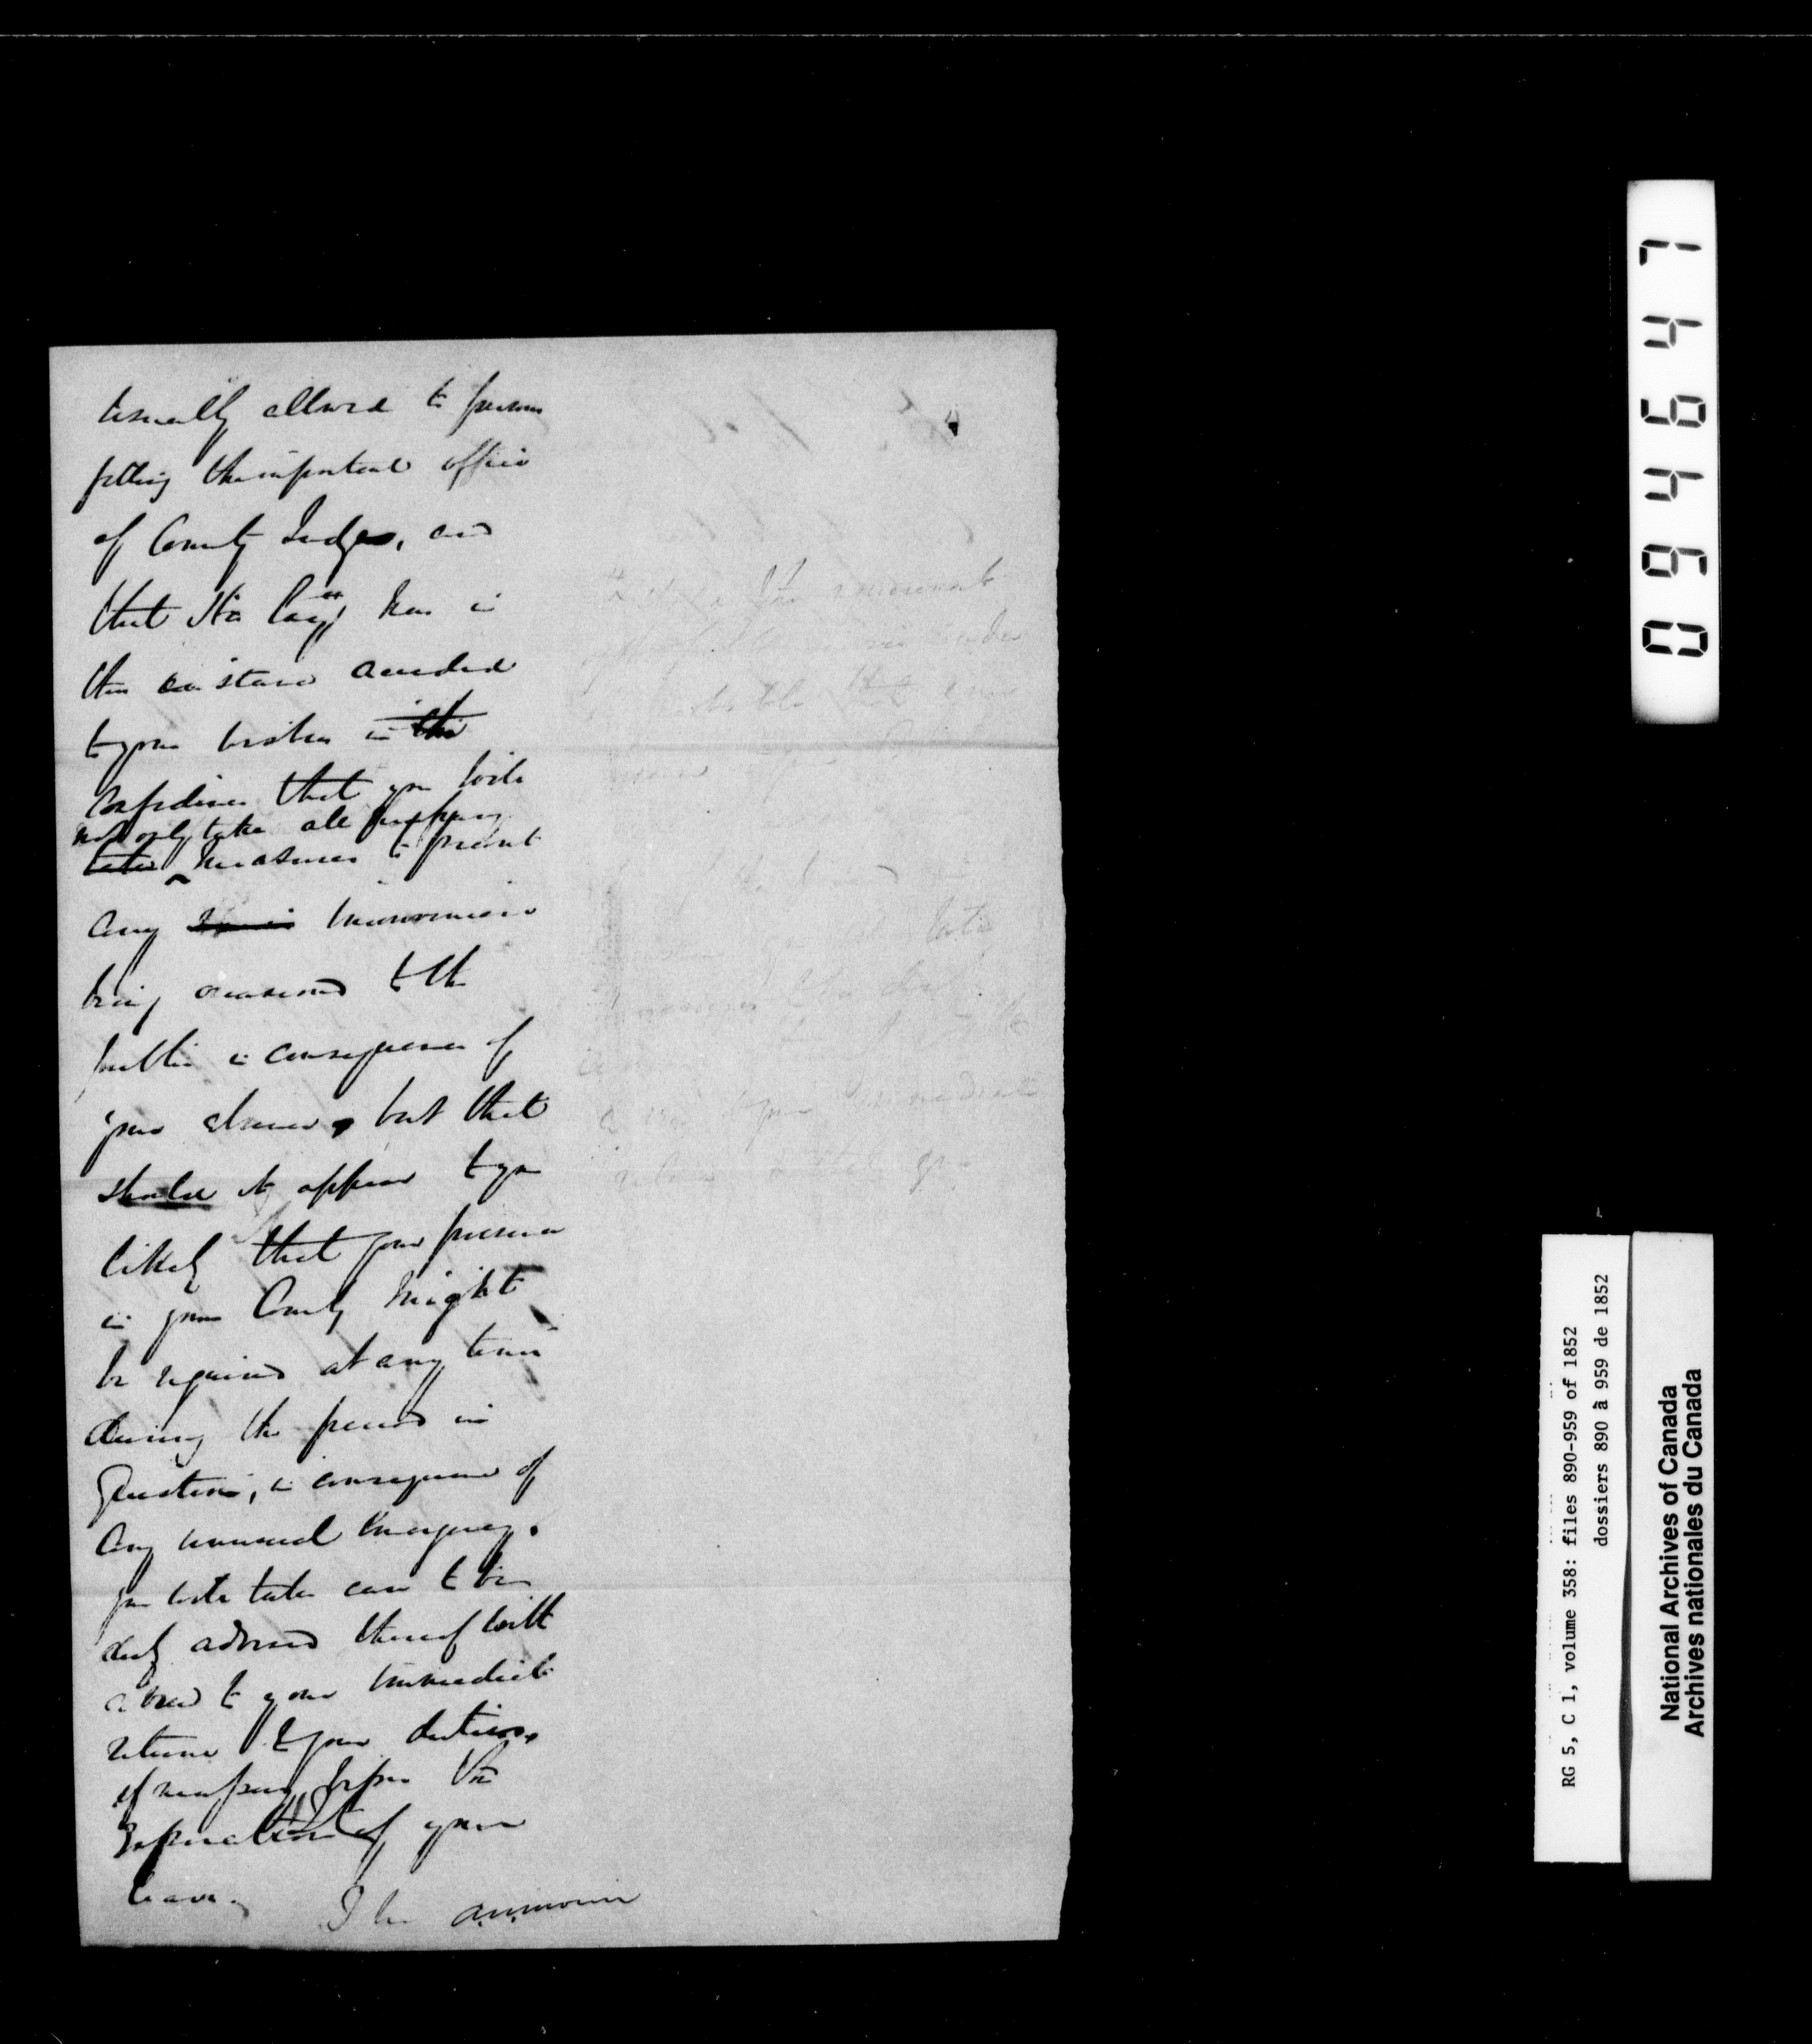 usually allowed to persons
filling the important office
of County Judges, and
that His Excy has in
this instance acceded
to your wishes in this
confidence that you will
not only take all necessary
take measures to prevent
any inconvenience
being occasioned to the
public in consequence of
your absence, but that
should it appear to you
likely that your presence
in your County might
be required at any time
during the period in
Question, in consequence of
any unusual emergency.
you will take care to be
duly advised thereof with
a view to your immediate
return to your duties,
if necessary before the
Expiration of your
leave.
I be
094647
RG 5, C 1, volume 358: files 890-959 of 1852
dossiers 890 à 959 de 1852
National Archives of Canada
Archives nationales du Canada